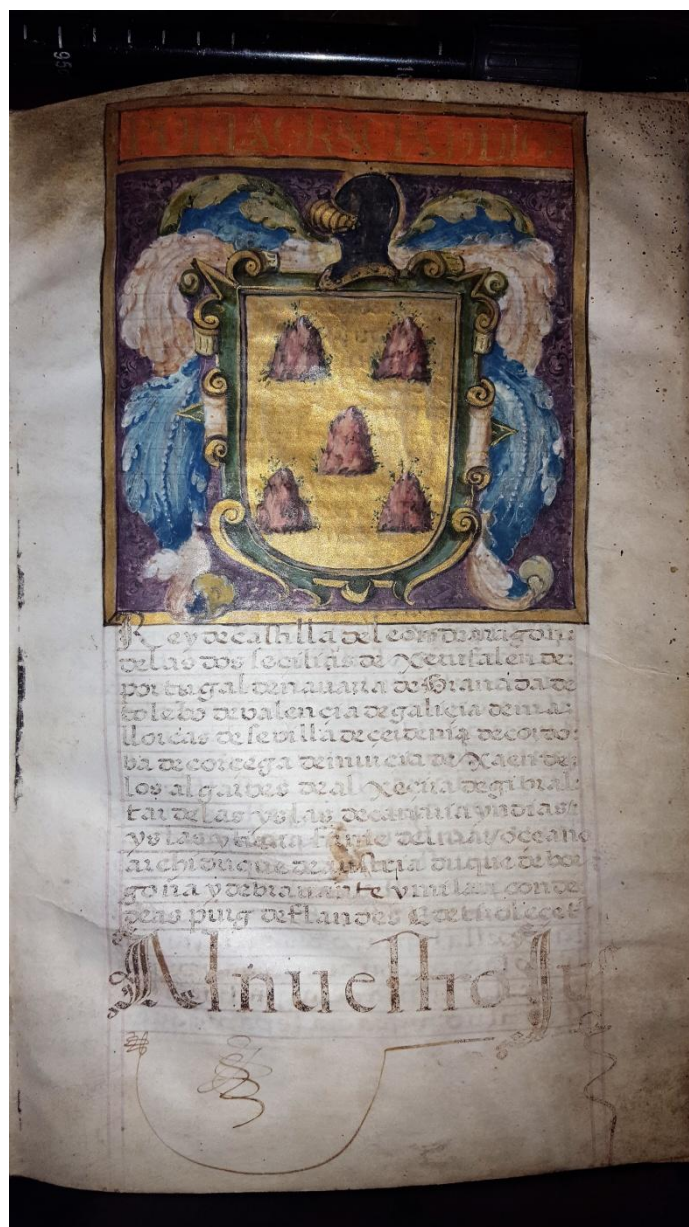 95
Rey de castilla de leon de aragon
delas dos secilias de Xerusalen de
portugal de navarra de Granada de
toledo de valencia de galicia de ma
llorcas de sevilla de cerdeña de cordo
va de corcega de murcia de Xaen de
los algarbes de al Xecira de gibral
tar delas yslas de canaria yndias
yslas y tierra firme del mar oceano
archiduque de austria duque de bor
goña y de bravante y milan conde
de flandes
Al nuestro Ju